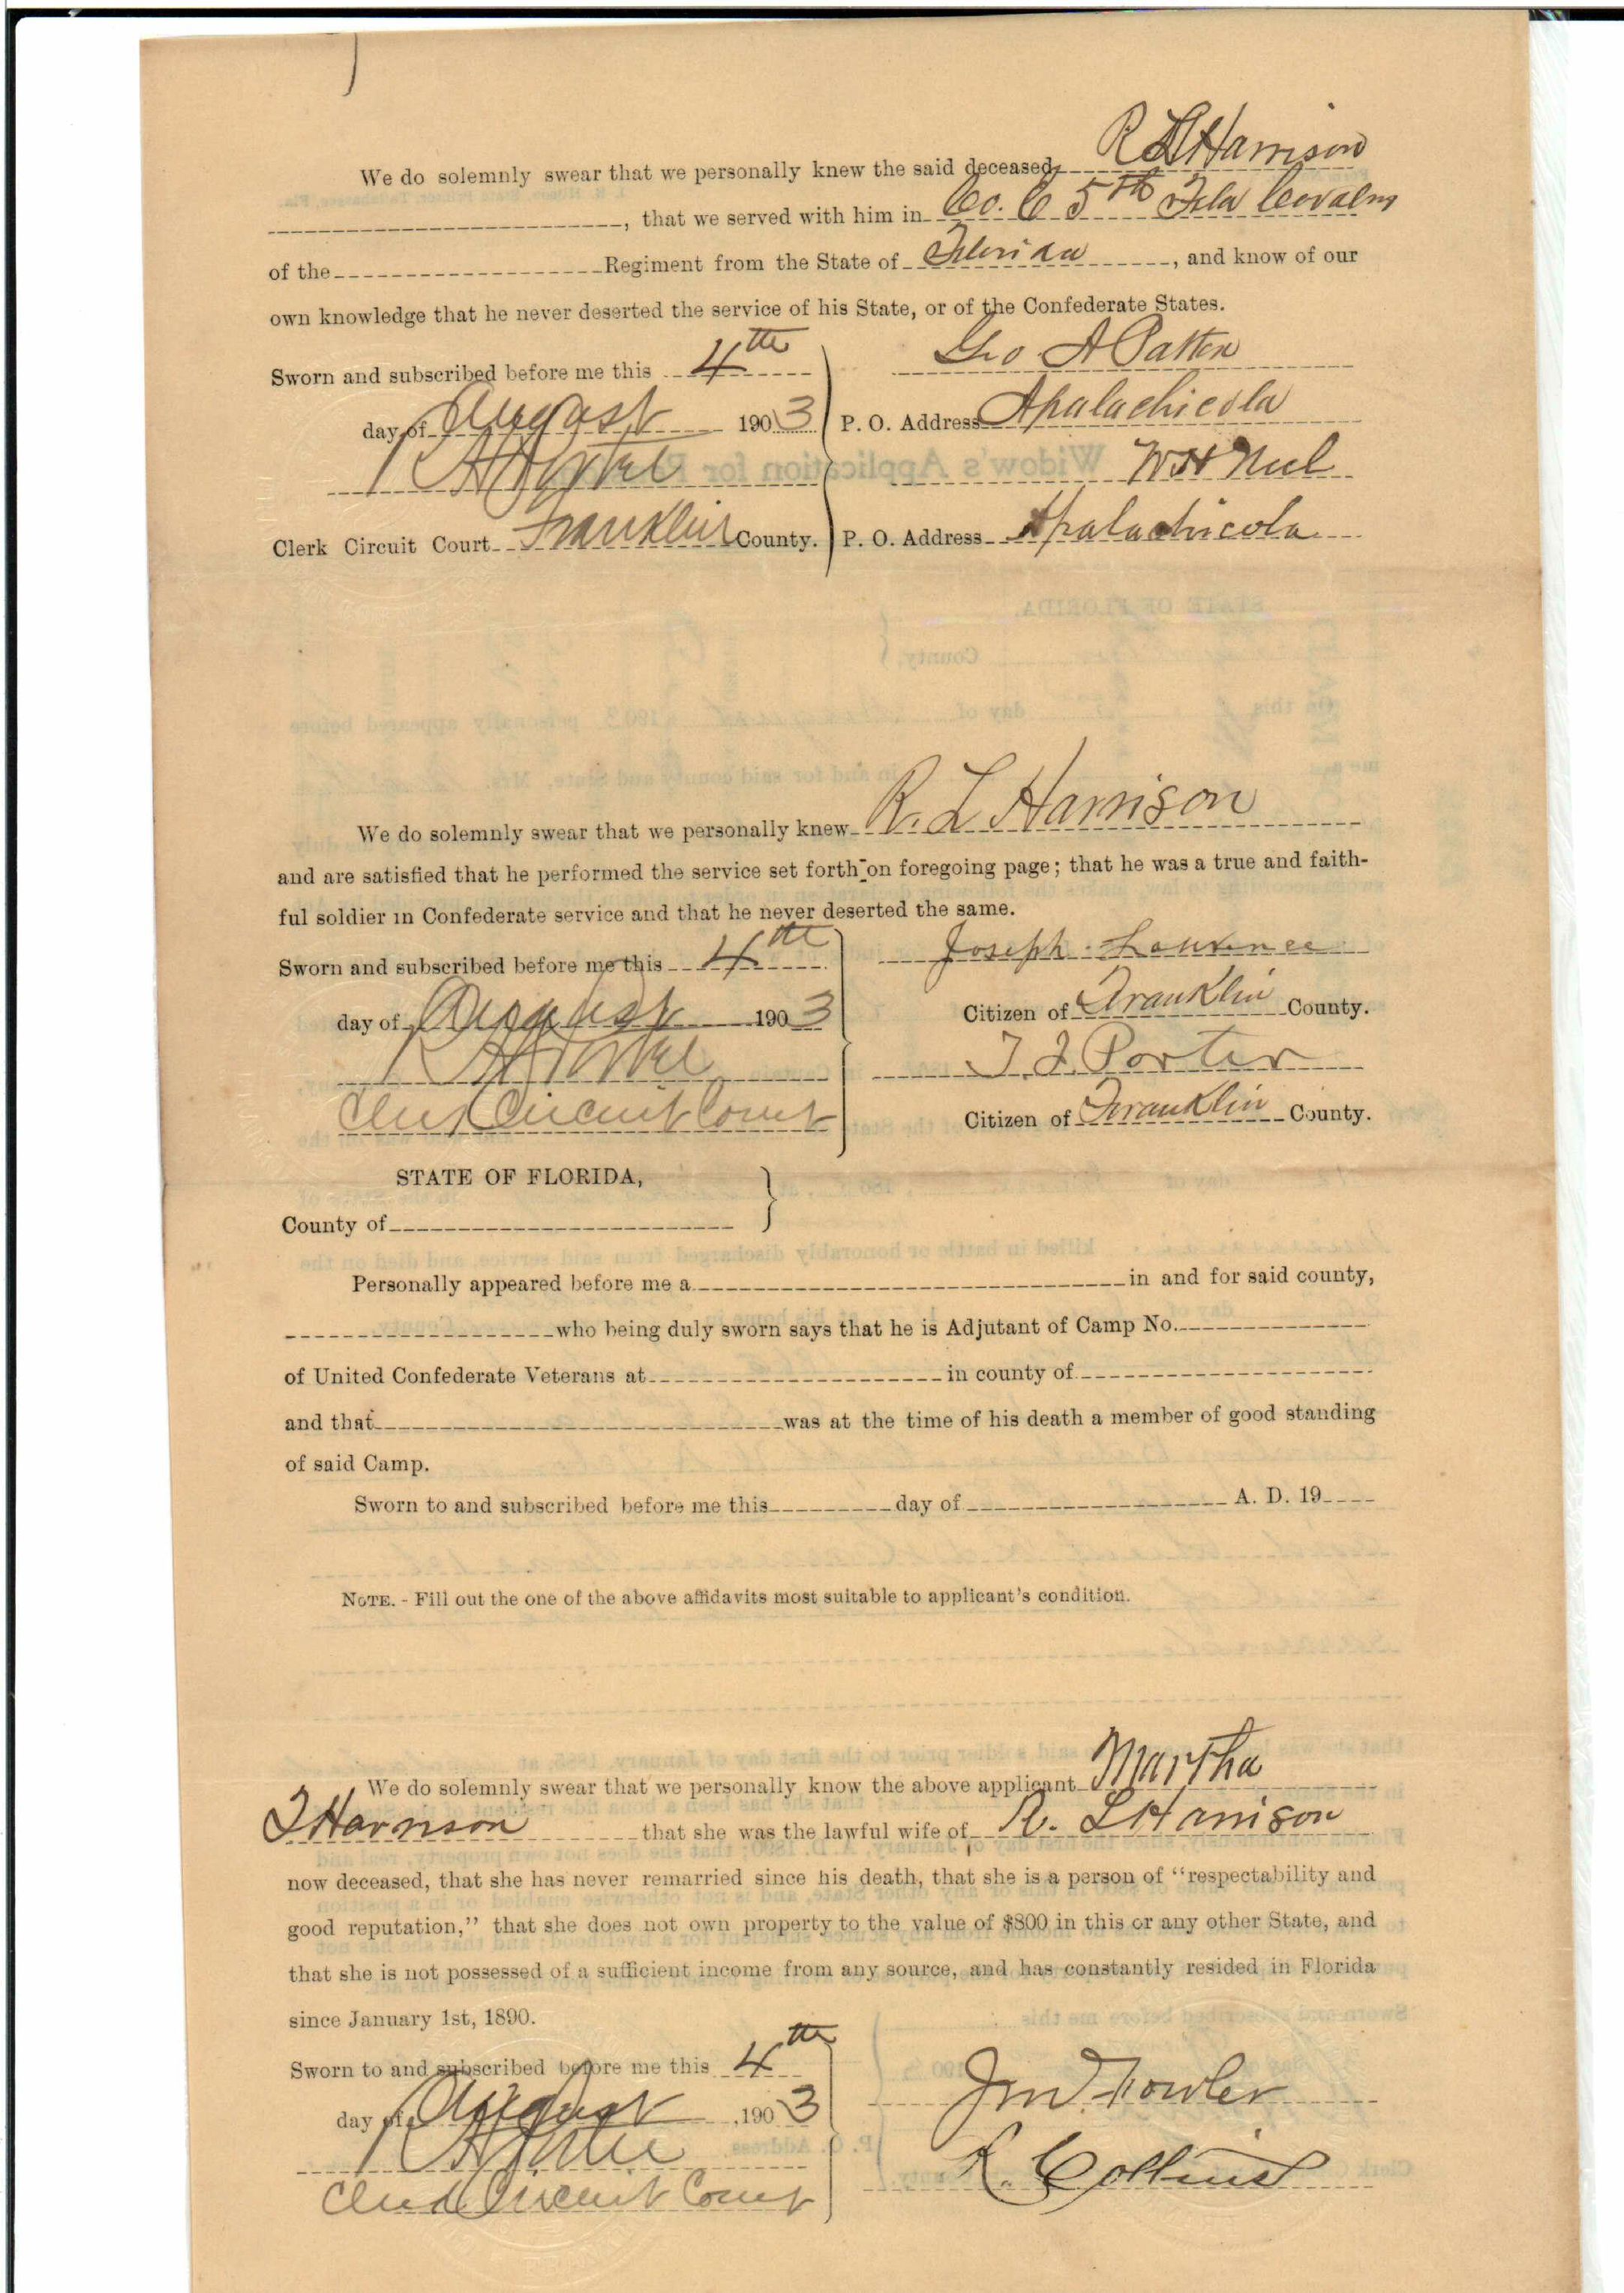 We do solemnly swear that we personally knew the said deceased, R L Harrison
, that we served with him in Co. C 5th Fla Covalry
of the Regiment from the State of Florida, and know of our
own knowledge that he never deserted the service of his State, or of the Confederate States.
Geo A Patten
Sworn and subscribed before me this 4th
day of August 1903 P. O. Address Apalachicola
W H Neel
Clerk Circuit Court Franklin County. P. O. Address Apalachicola
We do solemnly swear that we personally knew R. L Harrison
and are satisfied that he performed the service set forth on foregoing page; that he was a true and faith-
ful soldier in Confederate service and that he never deserted the same.
Joseph Lawrence
Sworn and subscribed before me this 4th
day of August 1903 Citizen of Franklin County.
Porter
Clerk Circuit Court Citizen of Franklin County.
STATE OF FLORIDA,
County of
Personally appeared before me a in and for said county,
who being duly sworn says that he is Adjutant of Camp No.
of United Confederate Veterans at in county of
and that was at the time of his death a member of good standing
of said Camp.
Sworn to and subscribed before me this day of A. D. 19
NOTE. - Fill out the one of the above affidavits most suitable to applicant's condition.
We do solemnly swear that we personally know the above applicant Martha
J Harrison that she was the lawful wife of R. L Harrison
now deceased, that she has never remarried since his death, that she is a person of "respectability and
good reputation," that she does not own property to the value of $800 in this or any other State, and
that she is not possessed of a sufficient income from any source, and has constantly resided in Florida
since January 1st, 1890.
Sworn to and subscribed before me this 4th
day of August 1903 Fowler
Clerk Circuit Court R. Collins